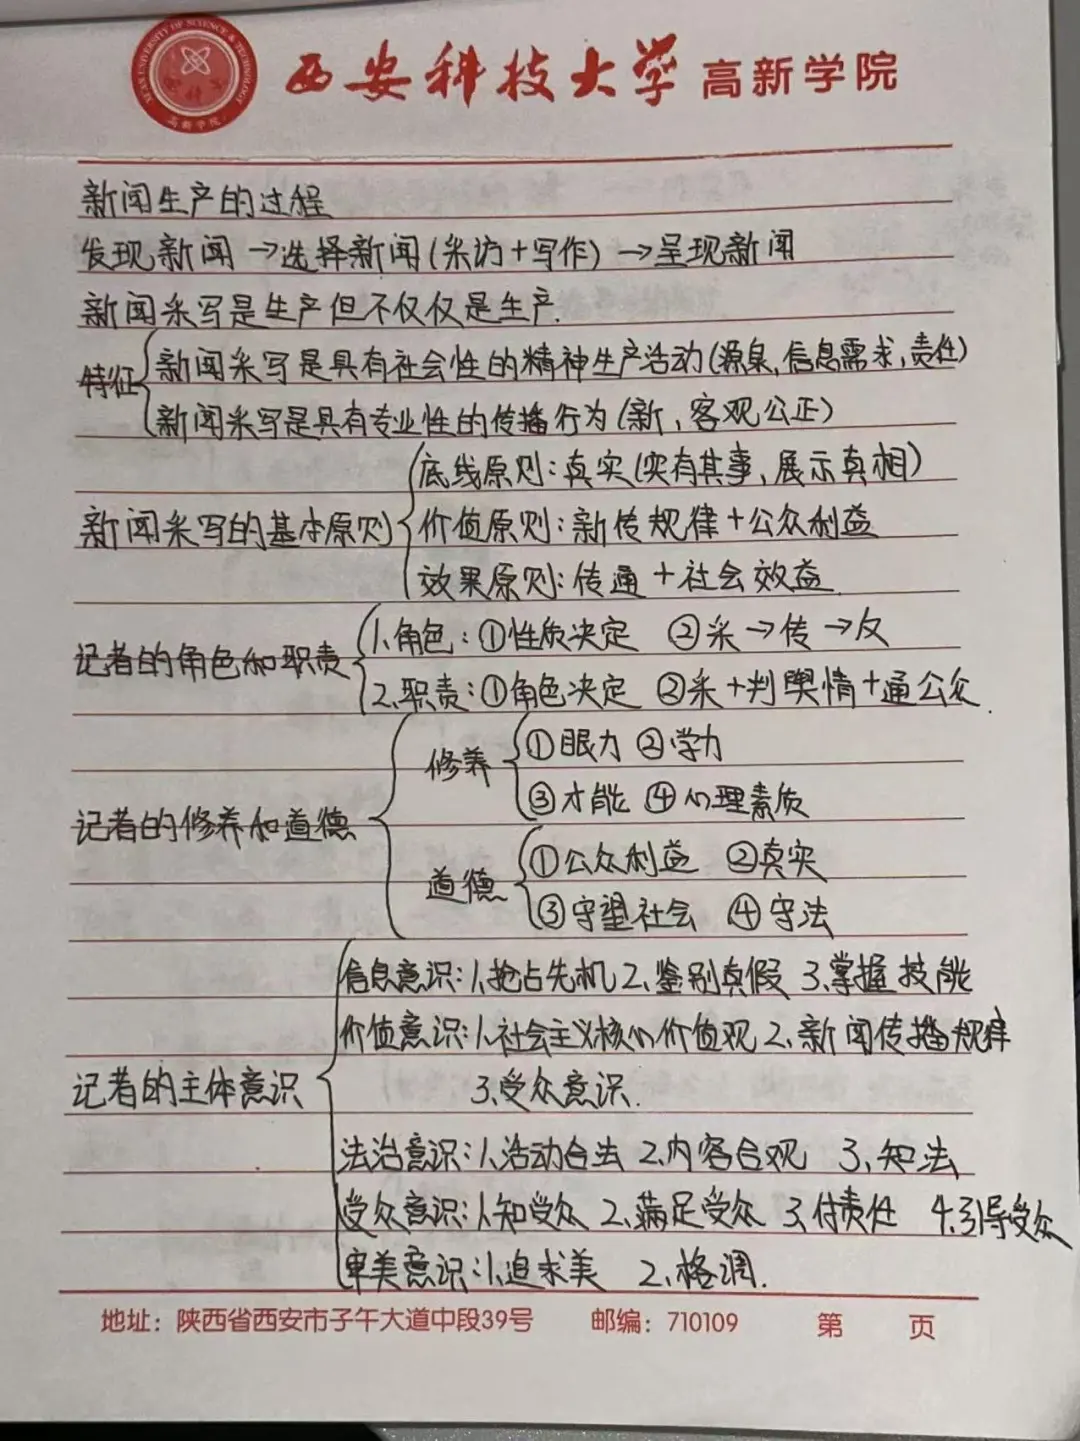 XI'AN UNIVERSITY OF SCIENCE & TECHNOLOGY
高新学院
西安科技大学 高新学院
新闻生产的过程
发现新闻→选择新闻(采访+写作)→呈现新闻
新闻采写是生产但不仅仅是生产.
特征
新闻采写是具有社会性的精神生产活动(源泉,信息需求,责任)
新闻采写是具有专业性的传播行为(新,客观公正)
新闻采写的基本原则
底线原则:真实(实有其事、展示真相)
价值原则:新传规律+公众利益
效果原则:传通+社会效益.
记者的角色和职责
1.角色:①性质决定 ②采→传→反
2.职责:①角色决定 ②采+判舆情+通公众.
记者的修养和道德
修养
①眼力 ②学力
③才能 ④心理素质
道德
①公众利益 ②真实
③守望社会 ④守法
记者的主体意识
信息意识:1.抢占先机 2.鉴别真假 3.掌握技能
价值意识:1.社会主义核心价值观 2.新闻传播规律
3.受众意识.
法治意识:1.活动合法 2.内容合观 3.知法
受众意识:1.知受众 2.满足受众 3.付责任 4.引导受众
审美意识:1.追求美 2.格调.
地址：陕西省西安市子午大道中段39号 邮编：710109 第 页